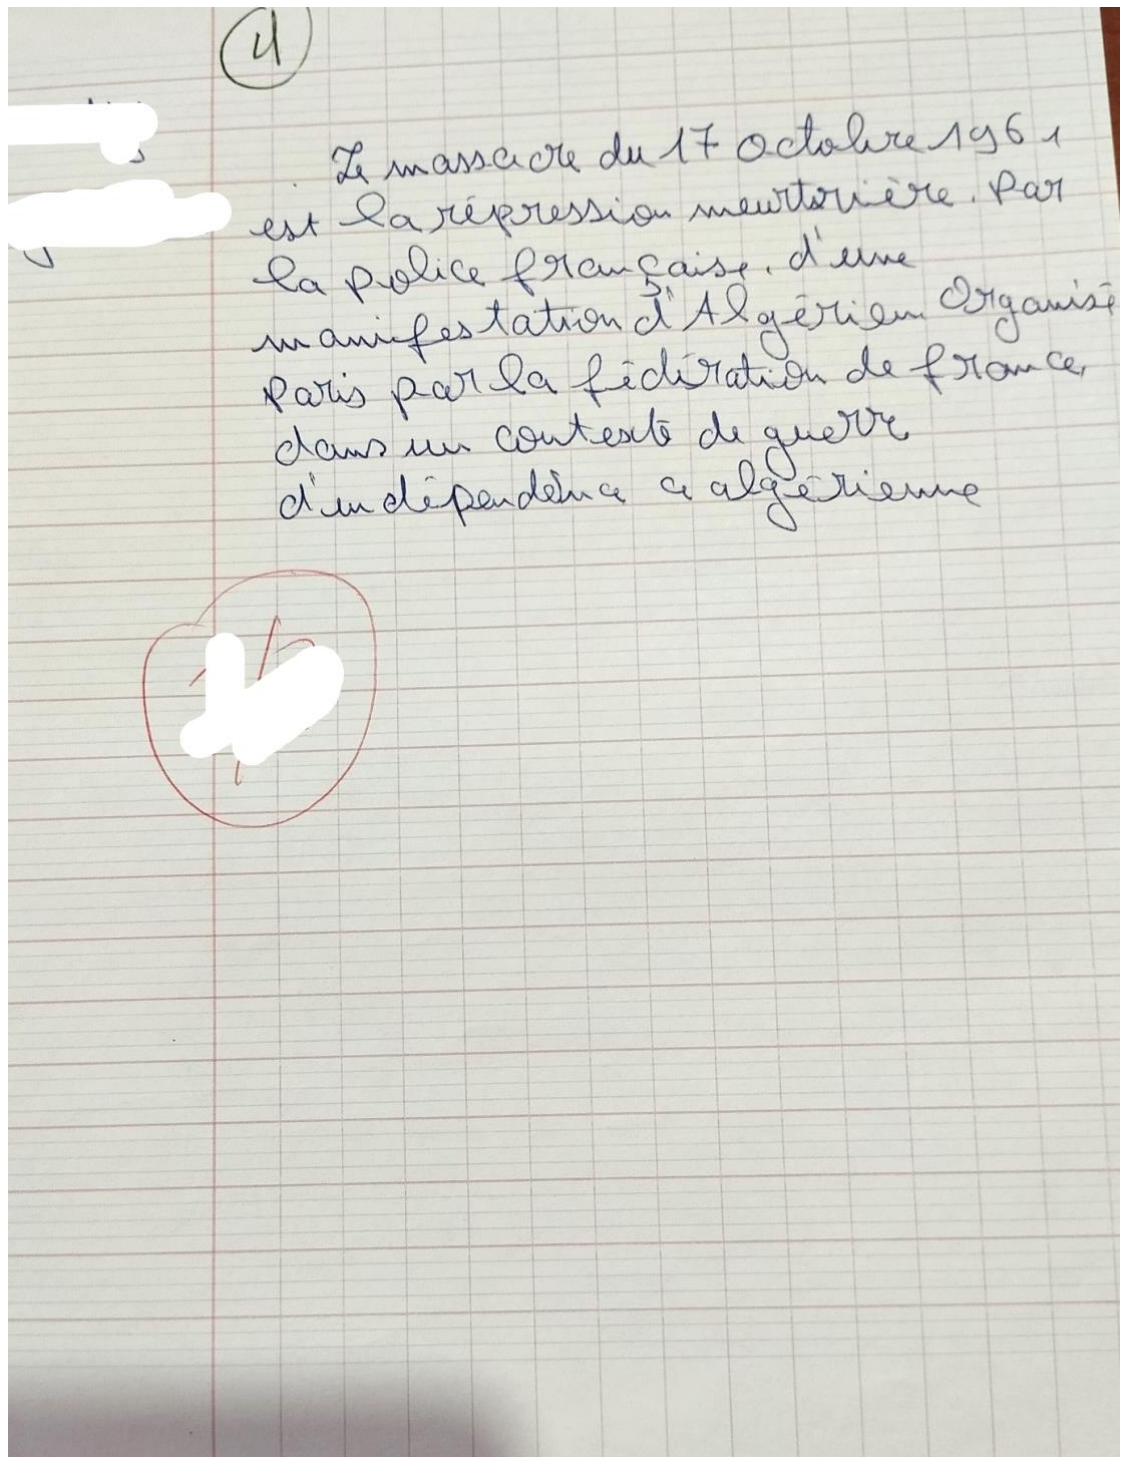 4
Le massacre du 17 octobre 1961
est la répression meurtrière. Par
la police française. d'une
manifestation d'Algérien Organisé
Paris par la fédération de france,
dans un contexte de guerre
d'indépendence a algérienne